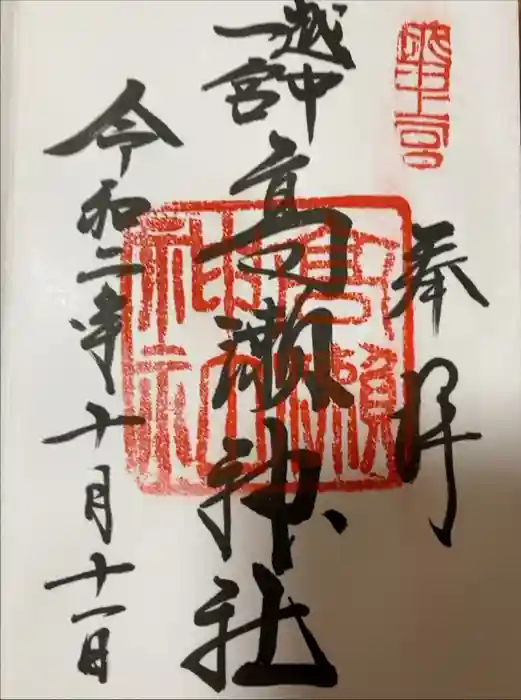 奉拝
越中
一宮
高瀬神社
令和二年十月十一日
越中一宮
高瀬神社